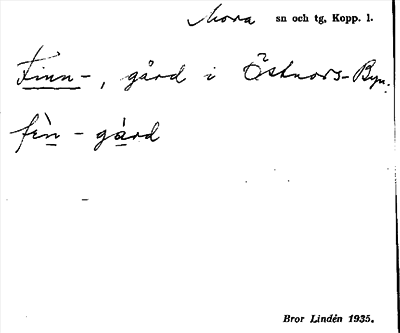 Mora sn och tg, Kopp. l.
Finn-, gård i Östnors-Byn.
fìn - gàrd
Bror Lindén 1935.